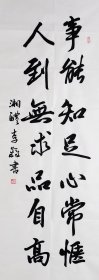 事能知足心常惬
人到無求品自高
湘灃李毅書